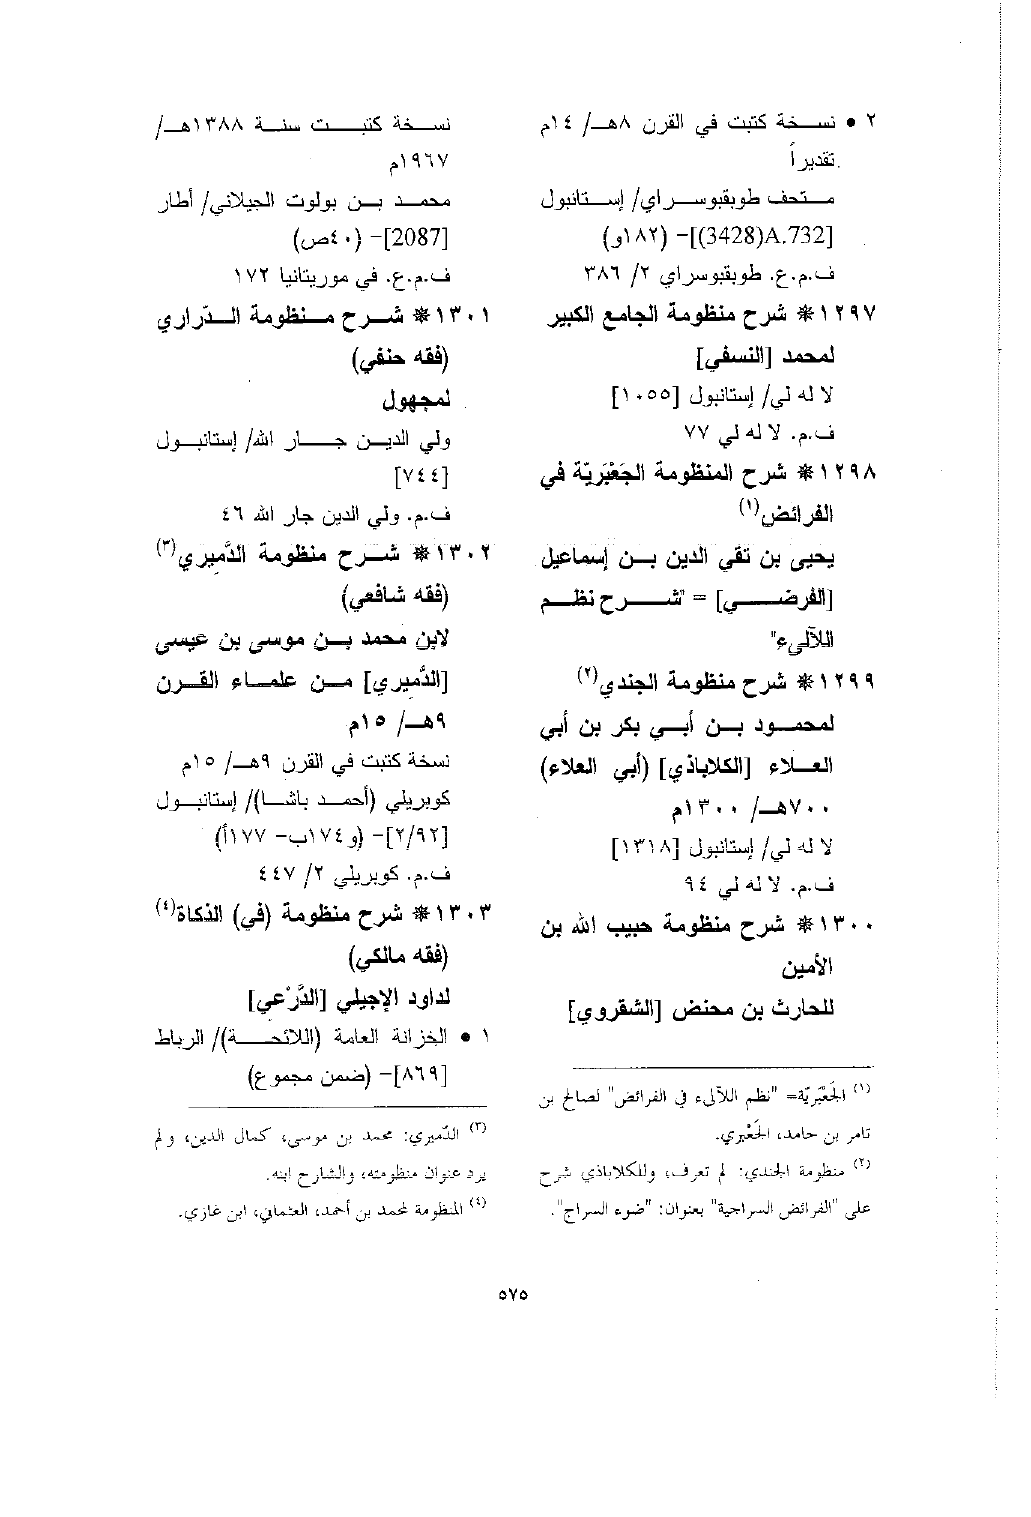 ٢ • نسخة كتبت في القرن ٨هـ/ ١٤م
تقديراً
متحف طوبقبوسراي/ إستانبول
[3428)A.732)]– (١٨٢و)
ف.م.ع. طوبقبوسراي ٢/ ٣٨٦
١٢٩٧ * شرح منظومة الجامع الكبير
لمحمد [النسفي]
لا له لي/ إستانبول [١٠٥٥]
ف.م. لا له لي ٧٧
١٢٩٨ * شرح المنظومة الجَعْبَريّة في
الفرائض(١)
يحيى بن تقي الدين بن إسماعيل
[الفرضي] = "شرح نظم
اللآلىء"
١٢٩٩ * شرح منظومة الجندي(٢)
لمحمود بن أبي بكر بن أبي
العلاء [الكلاباذي] (أبي العلاء)
٧٠٠هـ/ ١٣٠٠م
لا له لي/ إستانبول [١٣١٨]
ف.م. لا له لي ٩٤
١٣٠٠ * شرح منظومة حبيب الله بن
الأمين
للحارث بن محنض [الشقروي]
(١) الجَعْبَريّة= "نظم اللآلىء في الفرائض" لصالح بن
تامر بن حامد، الجَعْبري.
(٢) منظومة الجندي: لم تعرف، وللكلاباذي شرح
على "الفرائض السراجية" بعنوان: "ضوء السراج".
نسخة كتبت سنة ١٣٨٨هـ/
١٩٦٧م
محمد بن بولوت الجيلاني/ أطار
[2087]– (٤٠ص)
ف.م.ع. في موريتانيا ١٧٢
١٣٠١ * شرح منظومة الدّراري
(فقه حنفي)
لمجهول
ولي الدين جار الله/ إستانبول
[٧٤٤]
ف.م. ولي الدين جار الله ٤٦
١٣٠٢ * شرح منظومة الدَّميري(٣)
(فقه شافعي)
لابن محمد بن موسى بن عيسى
[الدَّميري] من علماء القرن
٩هـ/ ١٥م
نسخة كتبت في القرن ٩هـ/ ١٥م
كوبريلي (أحمد باشا)/ إستانبول
[٢/٩٢]– (و١٧٤ب– ١٧٧أ)
ف.م. كوبريلي ٢/ ٤٤٧
١٣٠٣ * شرح منظومة (في) الذكاة(٤)
(فقه مالكي)
لداود الإجيلي [الدَّرْعي]
١ • الخزانة العامة (اللائحة)/ الرباط
[٨٦٩]– (ضمن مجموع)
(٣) الدّميري: محمد بن موسى، كمال الدين، ولم
يرد عنوان منظومته، والشارح ابنه.
(٤) المنظومة لمحمد بن أحمد، العثماني، ابن غازي.
٥٧٥